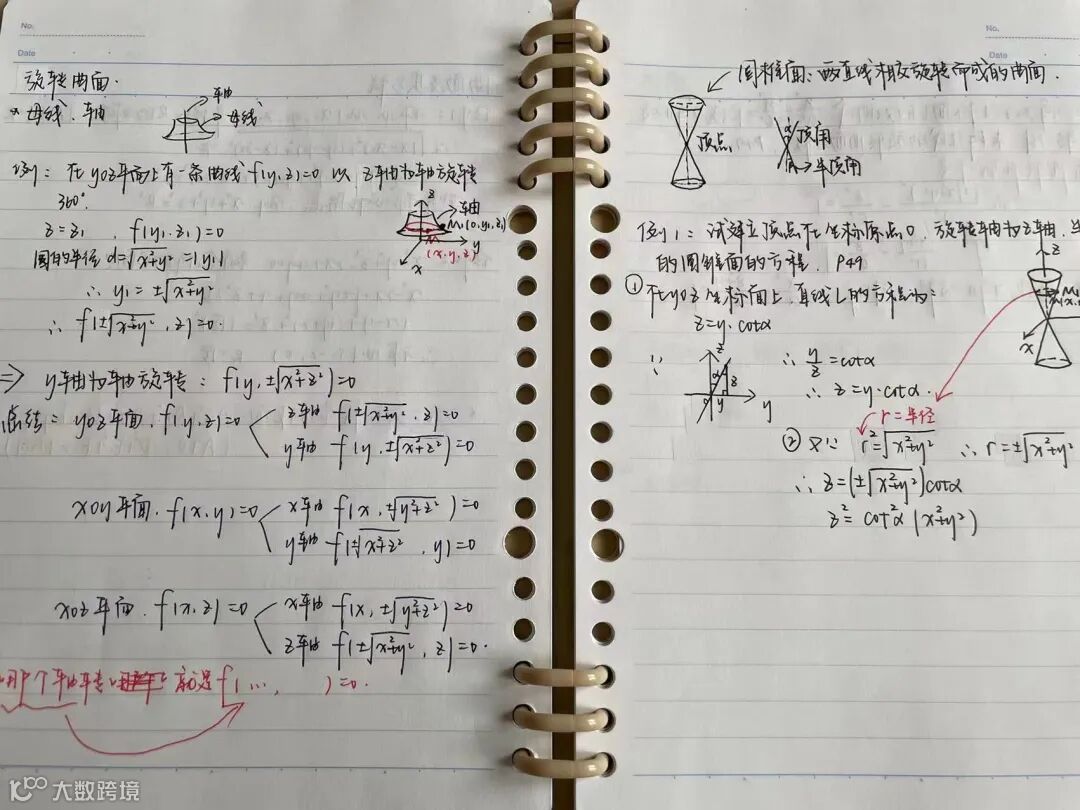 No.
Date
旋转曲面.
* 母线、轴
轴
母线
例1: 在yoz平面上有一条曲线 f(y,z)=0 以 z轴为轴旋转
360°.
z=z₁ , f(y₁,z₁)=0
圆的半径 d=√(x²+y²) =|y₁|
∴ y₁=±√(x²+y²)
∴ f(±√(x²+y²) , z)=0.
z
轴
M₁(0,y₁,z₁)
y
M
(x,y,z)
x
=> y轴为轴旋转: f(y,±√(x²+z²))=0
总结: yoz平面, f(y,z)=0
z轴 f(±√(x²+y²), z)=0
y轴 f(y,±√(x²+z²))=0
xoy平面. f(x,y)=0
x轴 f(x,±√(y²+z²))=0
y轴 f(±√(x²+z²) , y)=0
xoz平面. f(x,z)=0
x轴 f(x,±√(y²+z²))=0
z轴 f(±√(x²+y²), z)=0.
哪个轴转 就是 f(..., )=0.
No.
Date
圆锥面: 两直线相交旋转而成的曲面.
顶点
α
顶角
半顶角
例1: 试建立顶点在坐标原点O, 旋转轴为z轴.
的圆锥面的方程. P49
① 在yoz坐标面上, 直线L的方程为:
z=y·cotα
z
M₁
x
∵
z
α
z
y
y
∴ y/z=cotα
∴ z=y·cotα.
r=半径
② 又∵ r²=√(x²+y²) ∴ r=±√(x²+y²)
∴ z=(±√(x²+y²))cotα
z²= cot²α (x²+y²)
大数跨境